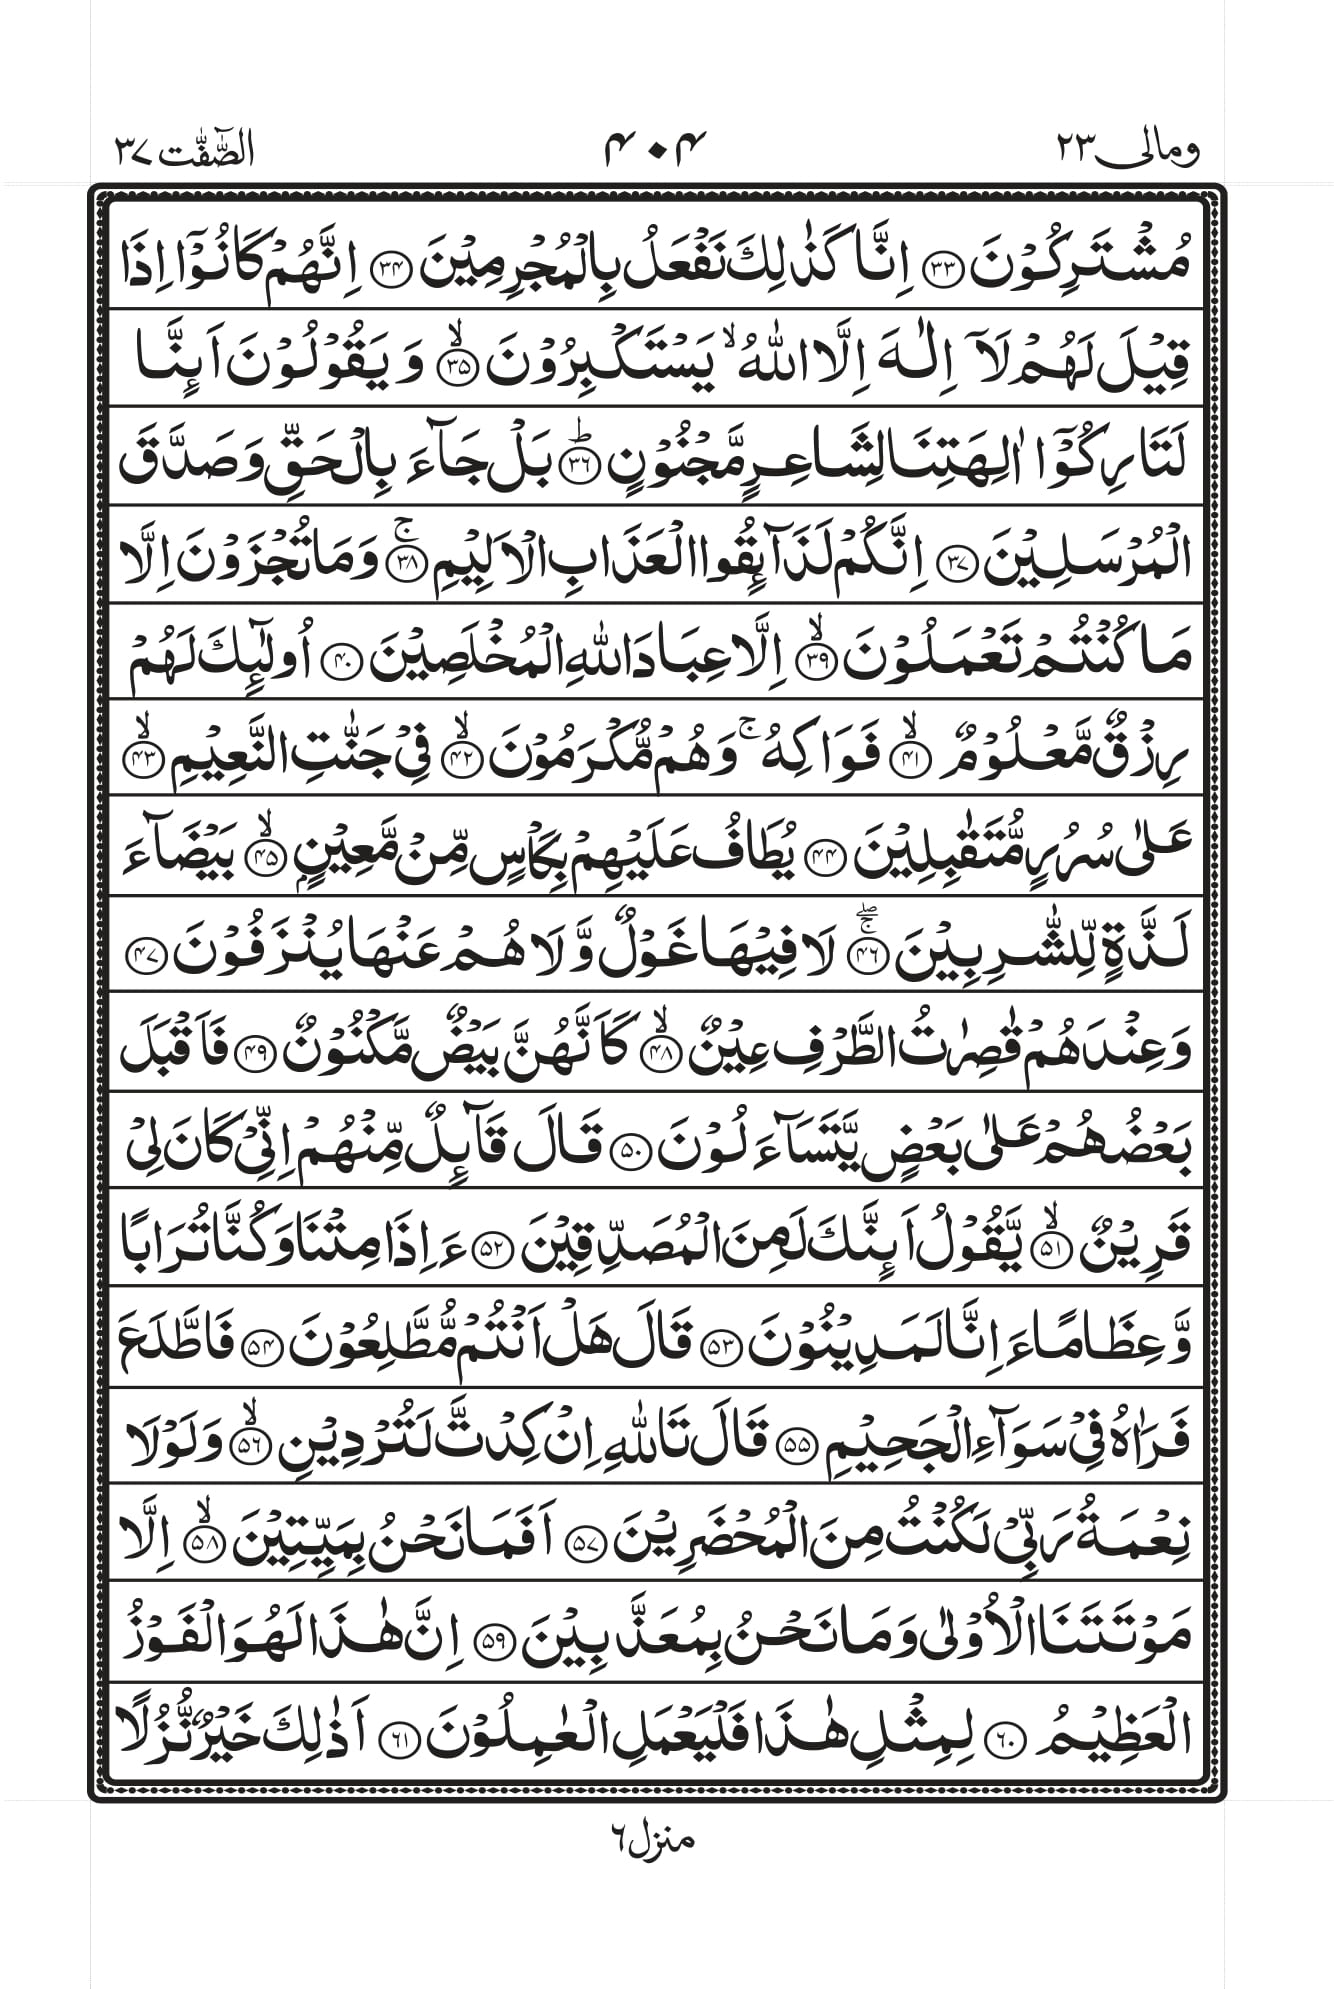 ومالی ۲۳ ۴۰۴ الصّٰٓفّٰت ۳۷
مُشْتَرِكُوْنَ ﴿۳۳﴾ اِنَّا كَذٰلِكَ نَفْعَلُ بِالْمُجْرِمِيْنَ ﴿۳۴﴾ اِنَّهُمْ كَانُوْۤا اِذَا
قِيْلَ لَهُمْ لَاۤ اِلٰهَ اِلَّا اللّٰهُ ۙ يَسْتَكْبِرُوْنَ ۙ﴿۳۵﴾ وَ يَقُوْلُوْنَ اَئِنَّا
لَتَارِكُوْۤا اٰلِهَتِنَا لِشَاعِرٍ مَّجْنُوْنٍ ؕ﴿۳۶﴾ بَلْ جَآءَ بِالْحَقِّ وَصَدَّقَ
الْمُرْسَلِيْنَ ﴿۳۷﴾ اِنَّكُمْ لَذَآئِقُوا الْعَذَابِ الْاَلِيْمِ ۚ﴿۳۸﴾ وَمَا تُجْزَوْنَ اِلَّا
مَا كُنْتُمْ تَعْمَلُوْنَ ۙ﴿۳۹﴾ اِلَّا عِبَادَ اللّٰهِ الْمُخْلَصِيْنَ ﴿۴۰﴾ اُولٰٓئِكَ لَهُمْ
رِزْقٌ مَّعْلُوْمٌ ۙ﴿۴۱﴾ فَوَاكِهُ ۚ وَهُمْ مُّكْرَمُوْنَ ۙ﴿۴۲﴾ فِيْ جَنّٰتِ النَّعِيْمِ ۙ﴿۴۳﴾
عَلٰى سُرُرٍ مُّتَقٰبِلِيْنَ ﴿۴۴﴾ يُطَافُ عَلَيْهِمْ بِكَاْسٍ مِّنْ مَّعِيْنٍۭ ۙ﴿۴۵﴾ بَيْضَآءَ
لَذَّةٍ لِّلشّٰرِبِيْنَ ۖۚ﴿۴۶﴾ لَا فِيْهَا غَوْلٌ وَّ لَا هُمْ عَنْهَا يُنْزَفُوْنَ ﴿۴۷﴾
وَعِنْدَهُمْ قٰصِرٰتُ الطَّرْفِ عِيْنٌ ۙ﴿۴۸﴾ كَاَنَّهُنَّ بَيْضٌ مَّكْنُوْنٌ ﴿۴۹﴾ فَاَقْبَلَ
بَعْضُهُمْ عَلٰى بَعْضٍ يَّتَسَآءَلُوْنَ ﴿۵۰﴾ قَالَ قَآئِلٌ مِّنْهُمْ اِنِّيْ كَانَ لِيْ
قَرِيْنٌ ۙ﴿۵۱﴾ يَّقُوْلُ اَئِنَّكَ لَمِنَ الْمُصَدِّقِيْنَ ﴿۵۲﴾ ءَاِذَا مِتْنَا وَكُنَّا تُرَابًا
وَّعِظَامًا ءَاِنَّا لَمَدِيْنُوْنَ ﴿۵۳﴾ قَالَ هَلْ اَنْتُمْ مُّطَّلِعُوْنَ ﴿۵۴﴾ فَاطَّلَعَ
فَرَاٰهُ فِيْ سَوَآءِ الْجَحِيْمِ ﴿۵۵﴾ قَالَ تَاللّٰهِ اِنْ كِدْتَّ لَتُرْدِيْنِ ۙ﴿۵۶﴾ وَلَوْلَا
نِعْمَةُ رَبِّيْ لَكُنْتُ مِنَ الْمُحْضَرِيْنَ ﴿۵۷﴾ اَفَمَا نَحْنُ بِمَيِّتِيْنَ ۙ﴿۵۸﴾ اِلَّا
مَوْتَتَنَا الْاُوْلٰى وَمَا نَحْنُ بِمُعَذَّبِيْنَ ﴿۵۹﴾ اِنَّ هٰذَا لَهُوَ الْفَوْزُ
الْعَظِيْمُ ﴿۶۰﴾ لِمِثْلِ هٰذَا فَلْيَعْمَلِ الْعٰمِلُوْنَ ﴿۶۱﴾ اَذٰلِكَ خَيْرٌ نُّزُلًا
منزل ۶